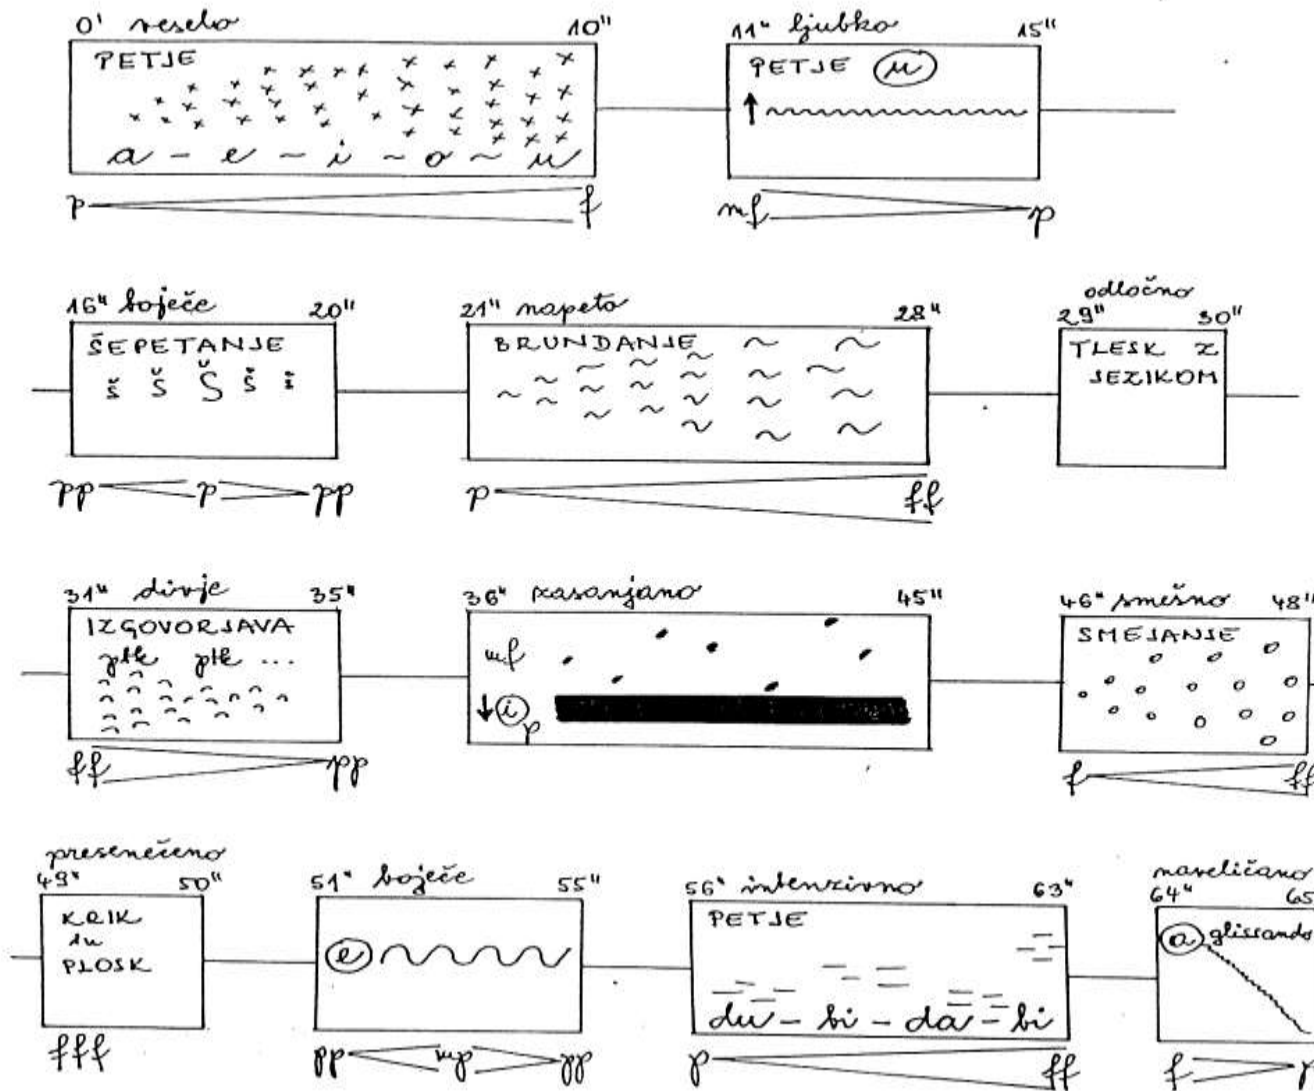 0' veselo 10"
PETJE
a - e - i - o - u
p f
11" ljubko 15"
PETJE u
mf p
16" boječe 20"
ŠEPETANJE
š š Š š š
pp p pp
21" napeto 28"
BRUNDANJE
p ff
odločno
29" 30"
TLESK Z
JEZIKOM
31" divje 35"
IZGOVORJAVA
ptk ptk ...
ff pp
36" zasanjano 45"
mf
i p
46" smešno 48"
SMEJANJE
f ff
presenečeno
49" 50"
KRIK
in
PLOSK
fff
51" boječe 55"
e
pp mp pp
56" intenzivno 63"
PETJE
du - bi - da - bi
p ff
naveličano
64" 65
a glissando
f p